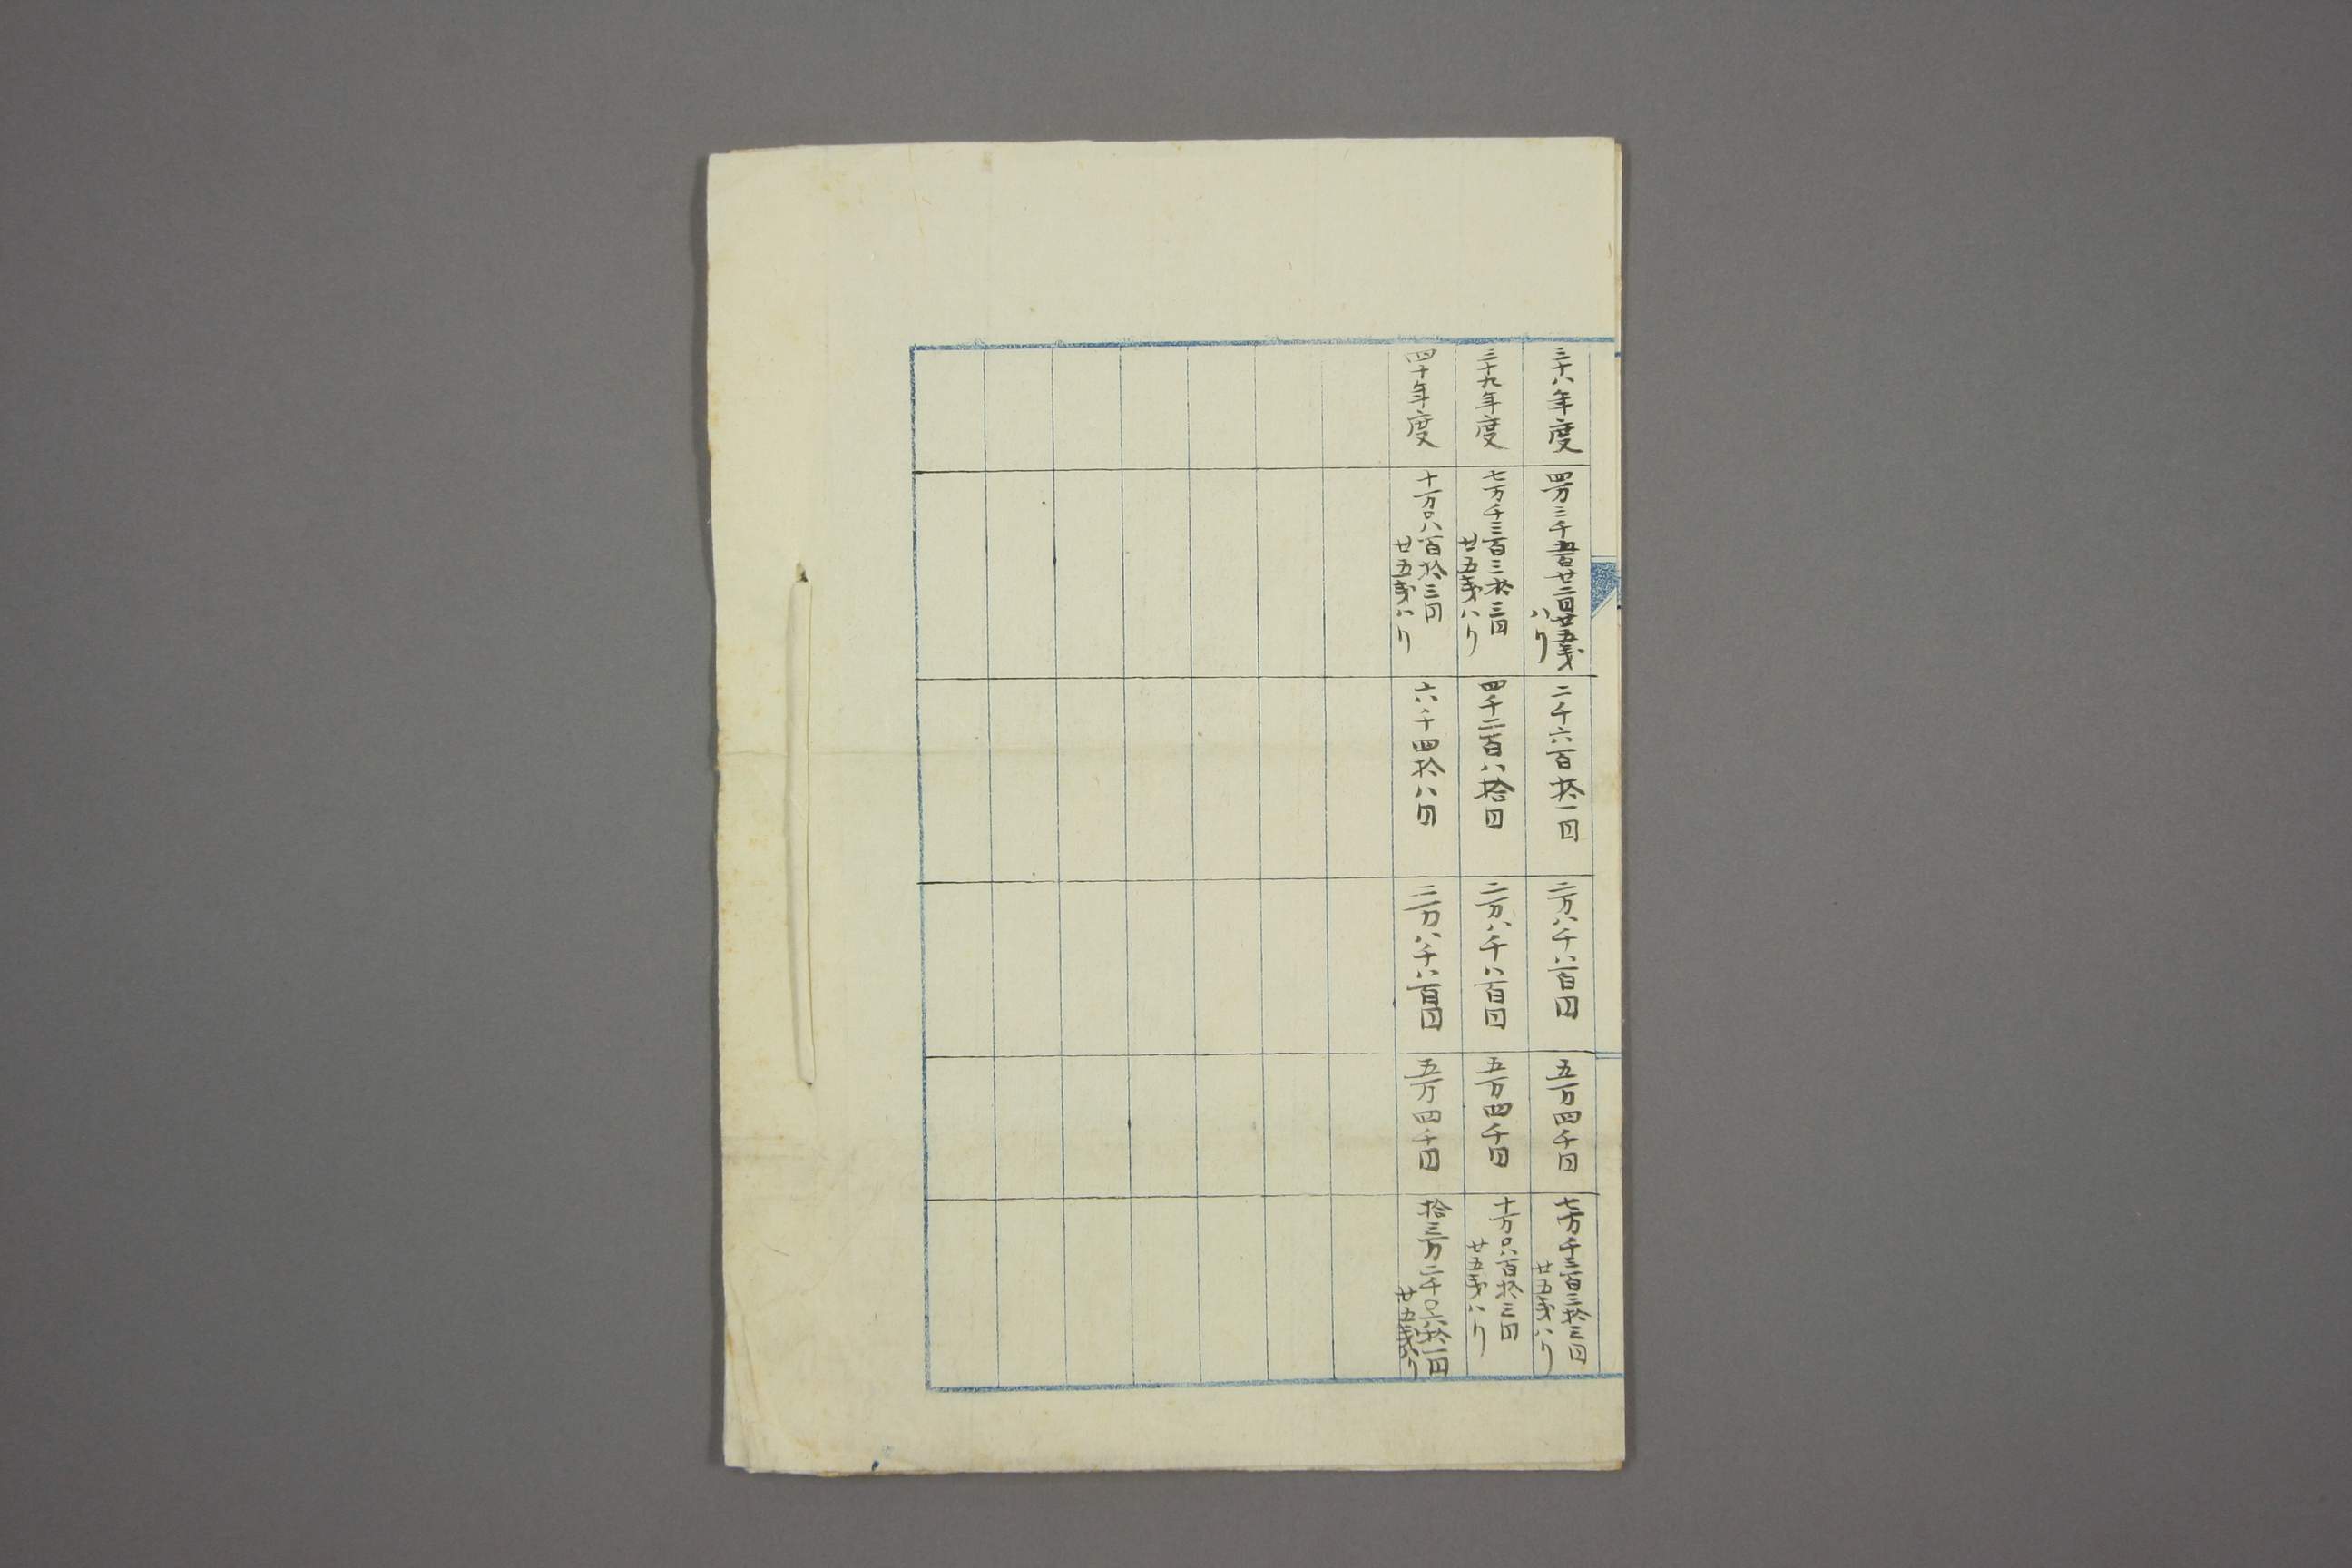 三十八年度
四万三千五百廿二円廿五銭
八リ
二千六百拾一円
二万八千八百円
五万四千円
七万千三百三拾三円
廿五銭八リ
三十九年度
七万千三百三拾三円
廿五銭八リ
四千二百八拾円
二万八千八百円
五万四千円
十万〇八百拾三円
廿五銭八リ
四十年度
十万〇八百拾三円
廿五銭八リ
六千四拾八円
二万八千八百円
五万四千円
拾三万二千〇六拾一円
廿五銭八リ